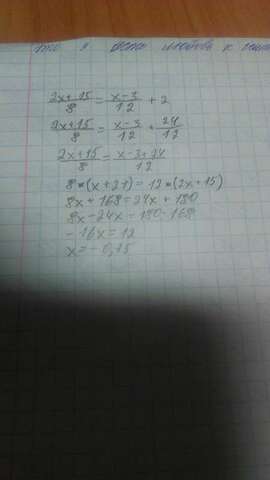 2x+15/8 = x-3/12 + 2
2x+15/8 = x-3/12 + 24/12
2x+15/8 = x-3+24/12
8*(x+21) = 12*(2x+15)
8x+168=24x+180
8x-24x=180-168
-16x=12
x=-0,75